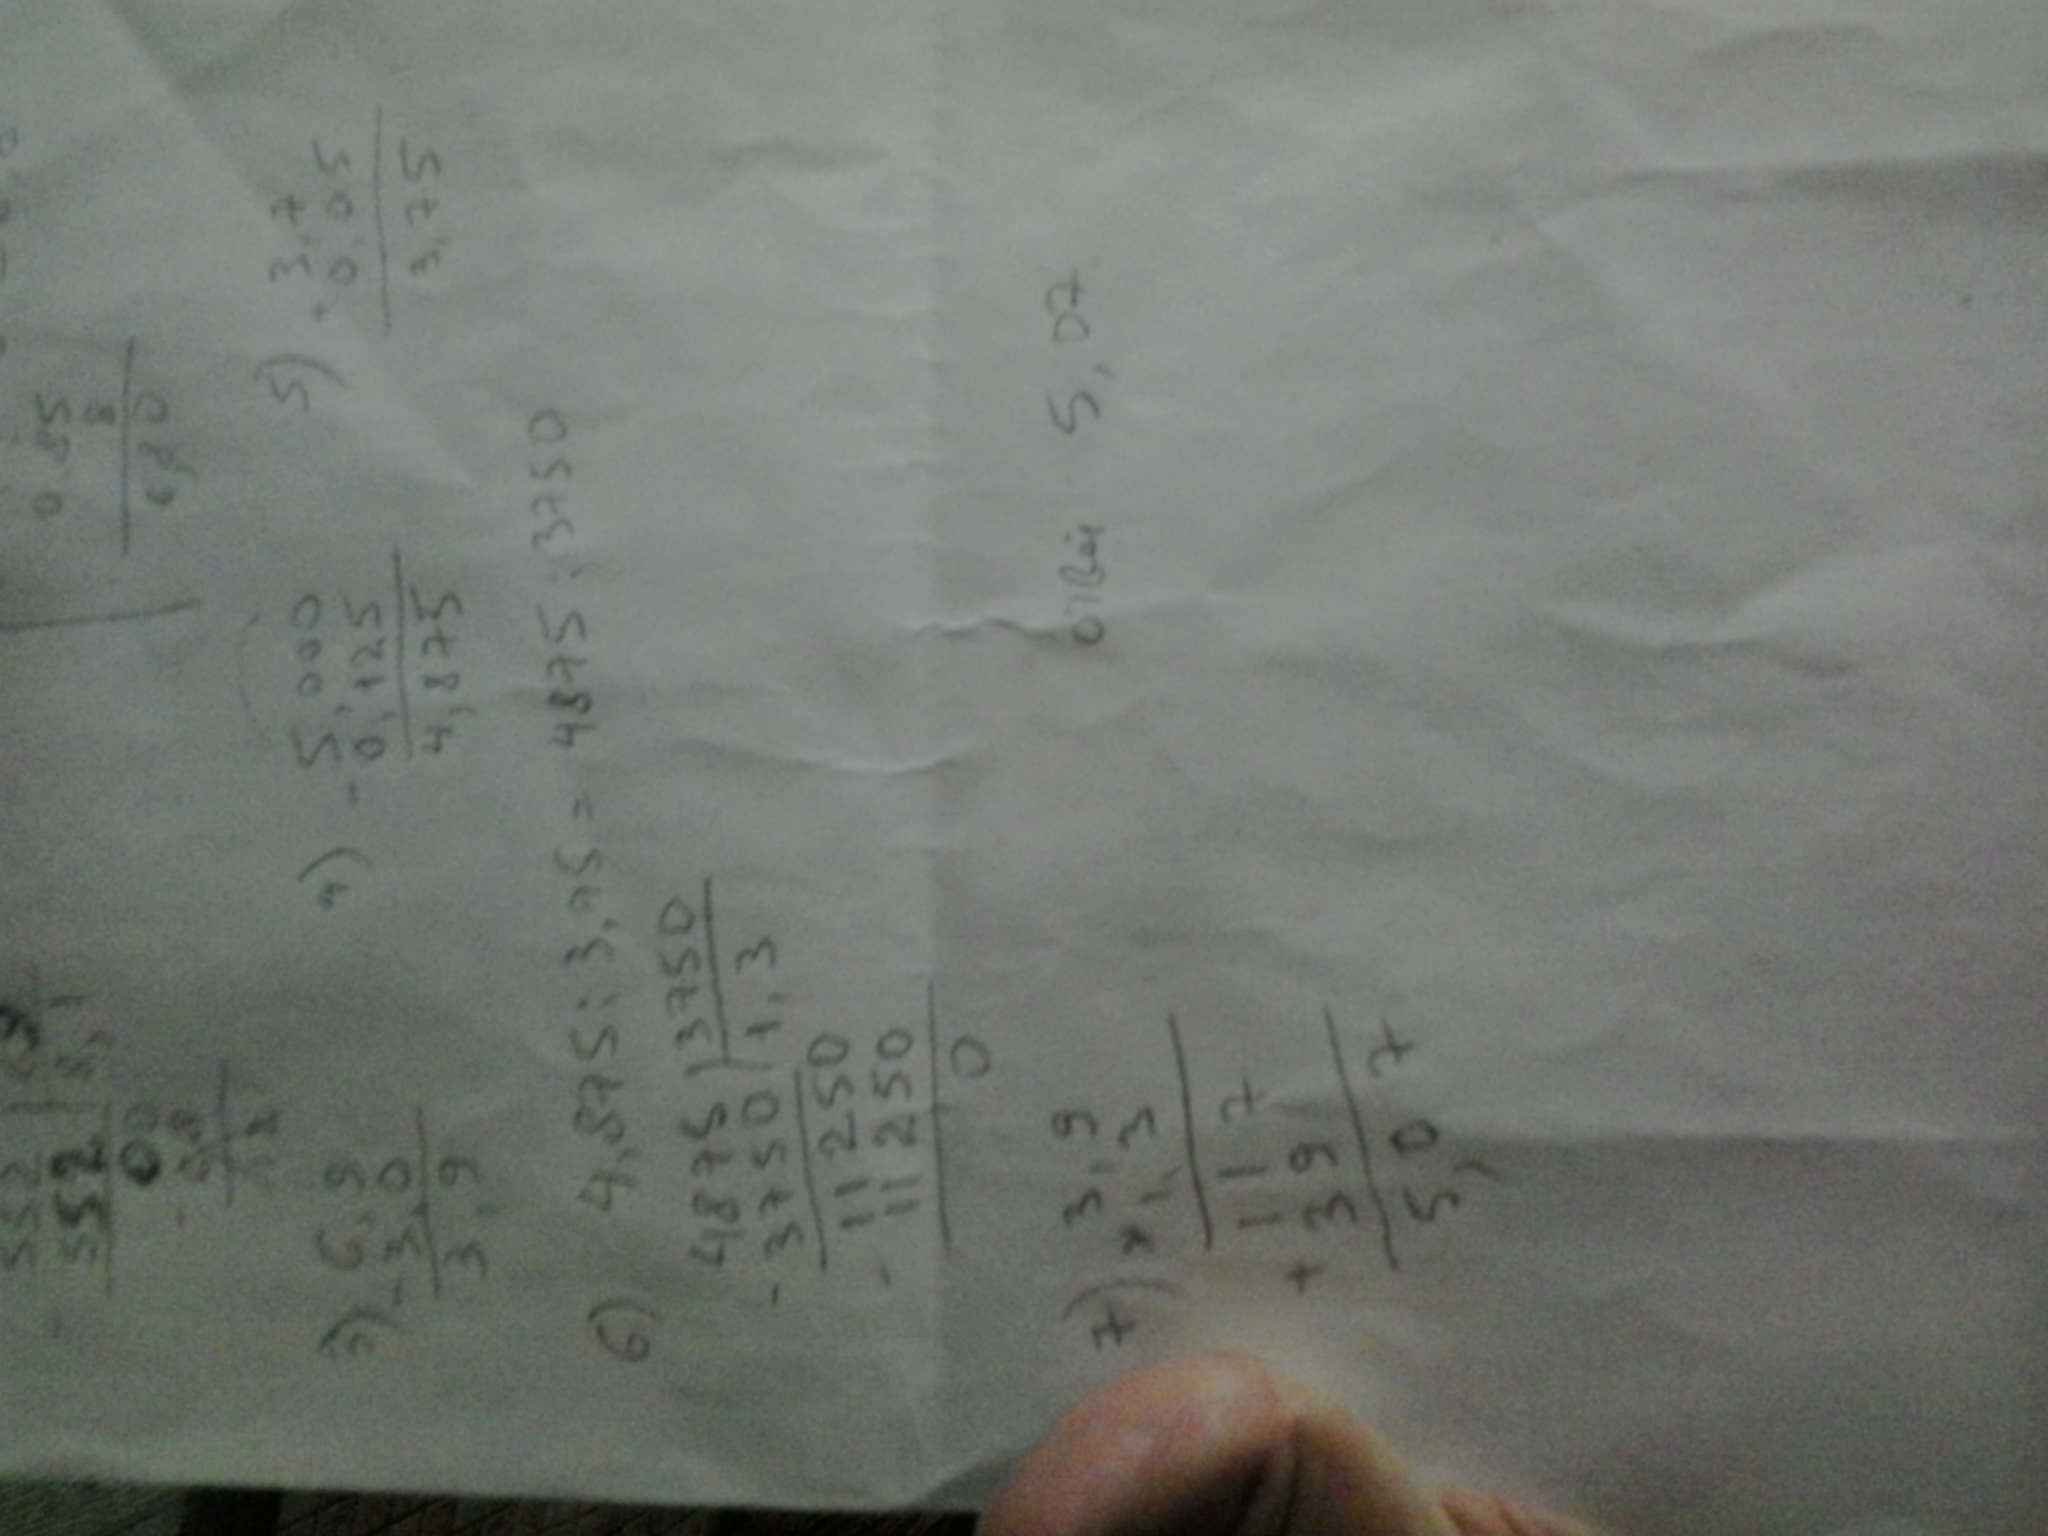 552
- 552
00
0,85
8
6,80
3) 6,9
- 3,0
3,9
4) - 5,000
0,125
4,875
5) + 3,7
0,05
3,75
6) 4,875 : 3,75 = 4875 : 3750
4875 | 3750
- 3750 | 1,3
11250
- 11250
0
7) × 3,9
1,3
117
+ 39
5,07
5,07